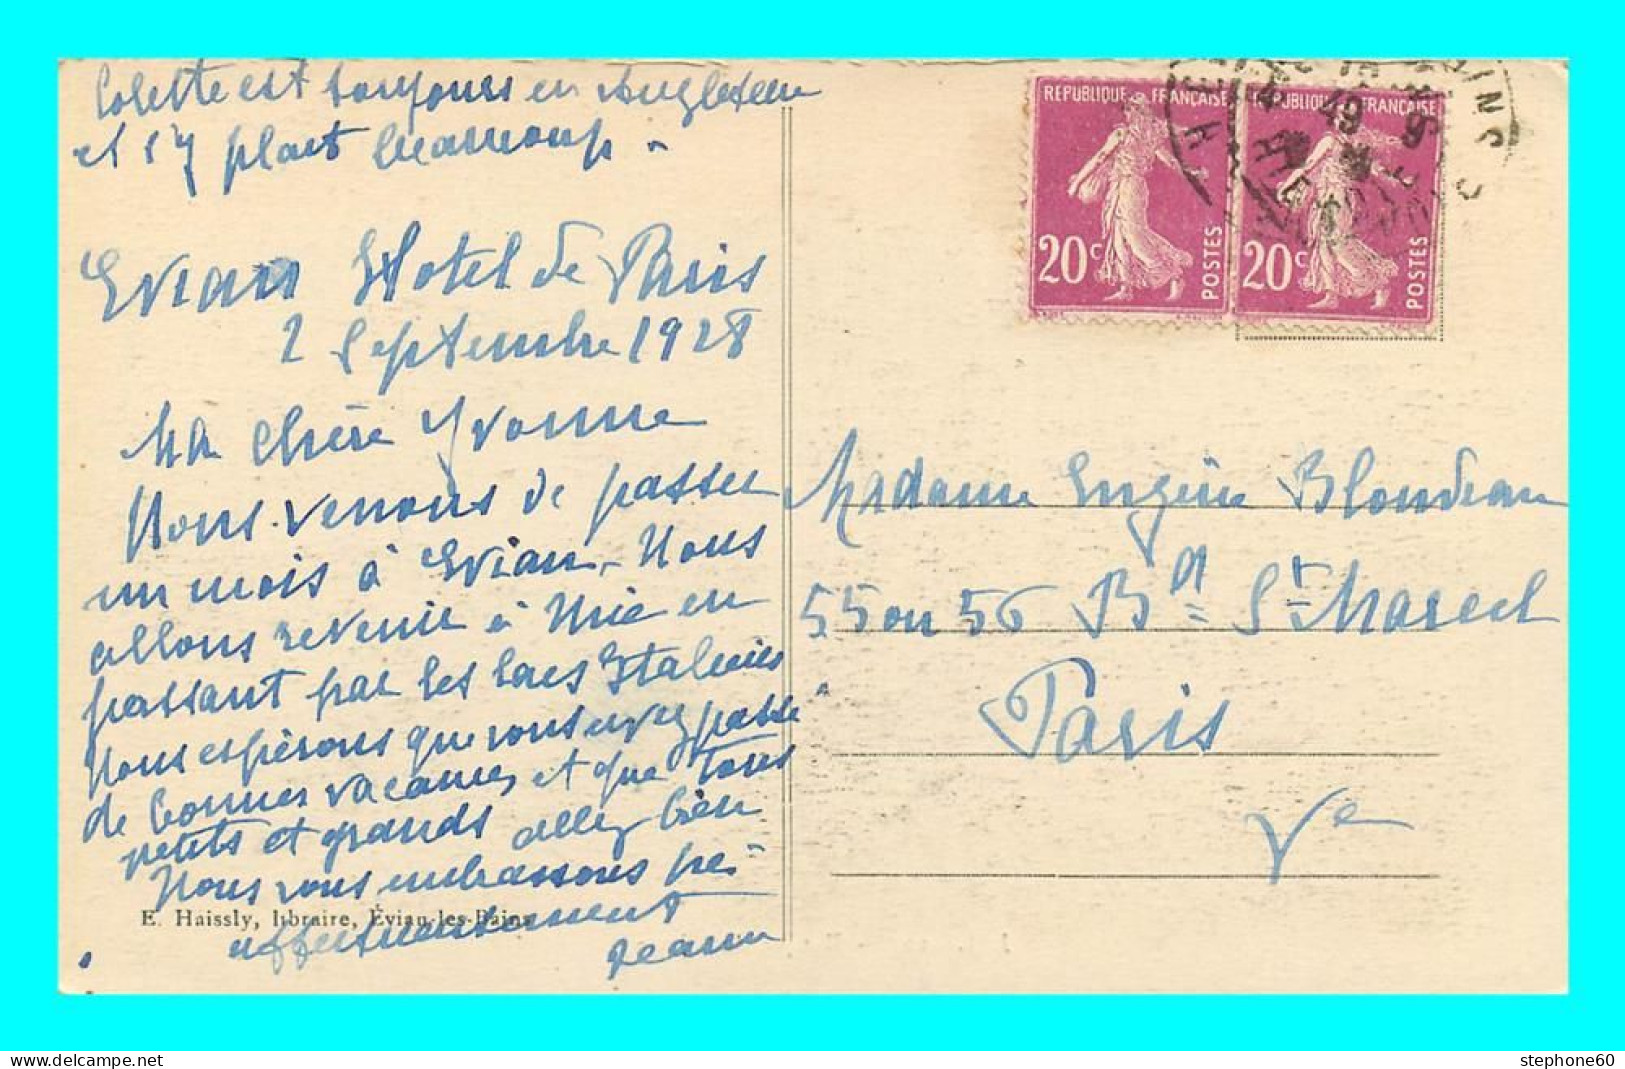 Colette est toujours en Angleterre
et s'y plait beaucoup.
Evian Hotel de Paris
2 Septembre 1928
Ma chère Yvonne
Nous venons de passer
un mois à Evian. Nous
allons revenir à Nice en
passant par les lacs Italiens
Nous espérons que vous avez passé
de bonnes vacances et que tous
petits et grands allez bien
Nous vous embrassons
affectueusement
Jeanne
E. Haissly, libraire, Évian-les-Bains
RÉPUBLIQUE FRANÇAISE
20c POSTES
RÉPUBLIQUE FRANÇAISE
20c POSTES
Madame Eugène Blondeau
55 ou 56 Bd St Marcel
Paris
Ve
stephone60